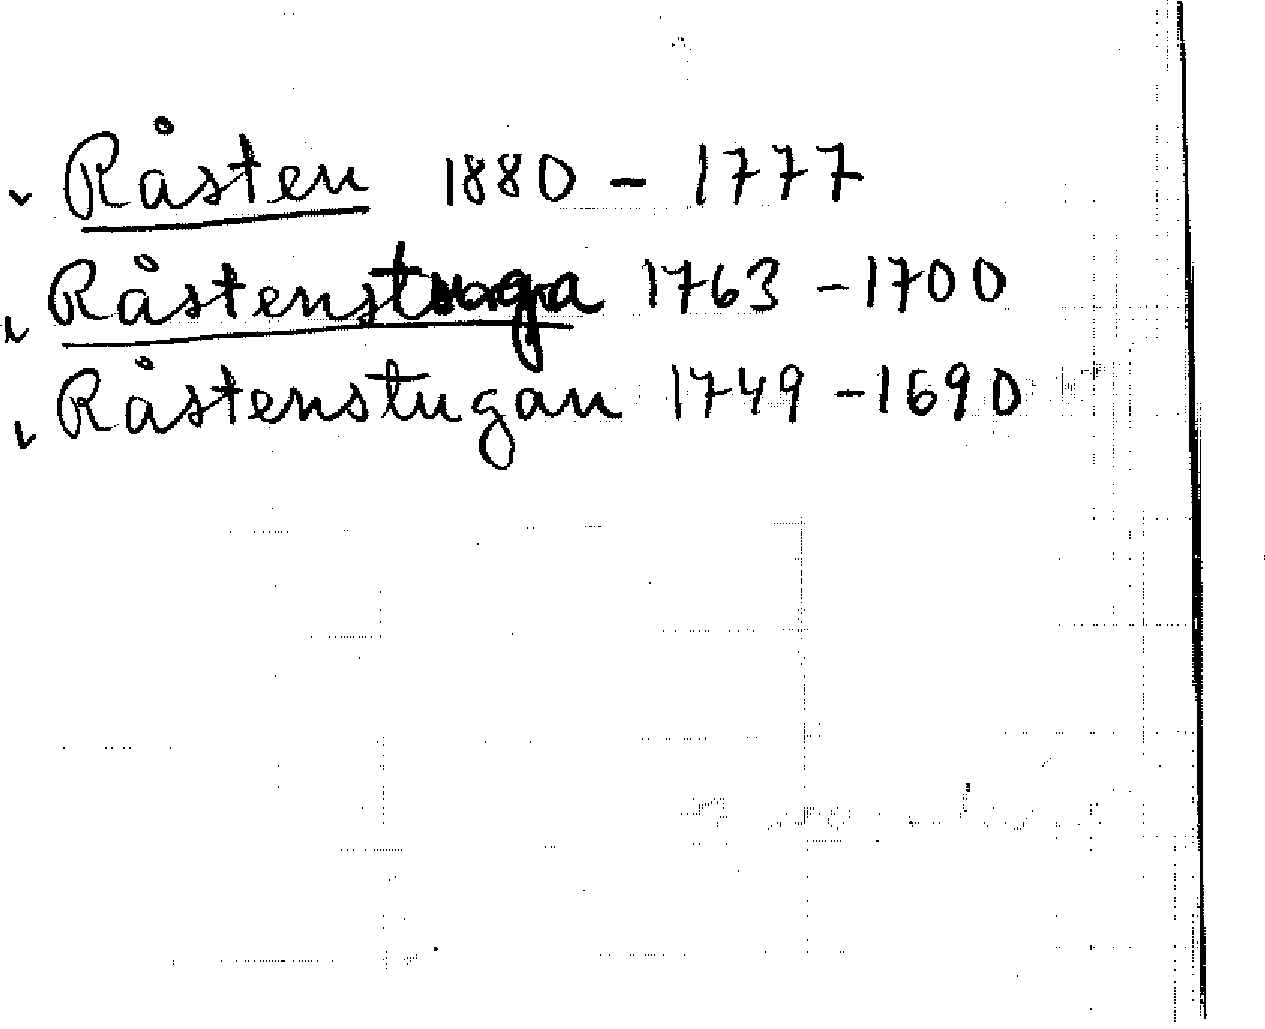 Råsten 1880 - 1777
Råstenstuga 1763 - 1700
Råstenstugan 1749 - 1690